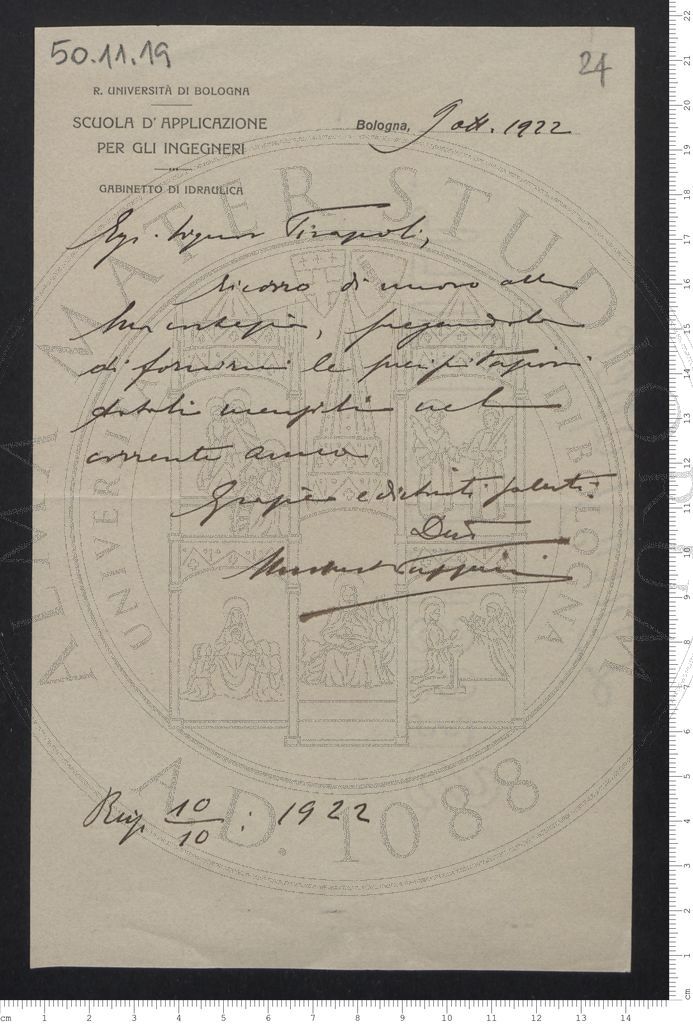 50.11.19
24
R. UNIVERSITÀ DI BOLOGNA
SCUOLA D'APPLICAZIONE
PER GLI INGEGNERI
GABINETTO DI IDRAULICA
Bologna, 9 ott. 1922
Egr. Signor Tirapoli,
Ricorro di nuovo alla
Sua cortesia, pregandola
di fornirmi le precipitazioni
totali mensili nel
corrente anno
Grazie e distinti saluti.
Dev
Risp. 10/10 : 1922
ALMA MATER STUDIORUM
UNIVERSITÀ DI BOLOGNA
A.D. 1088